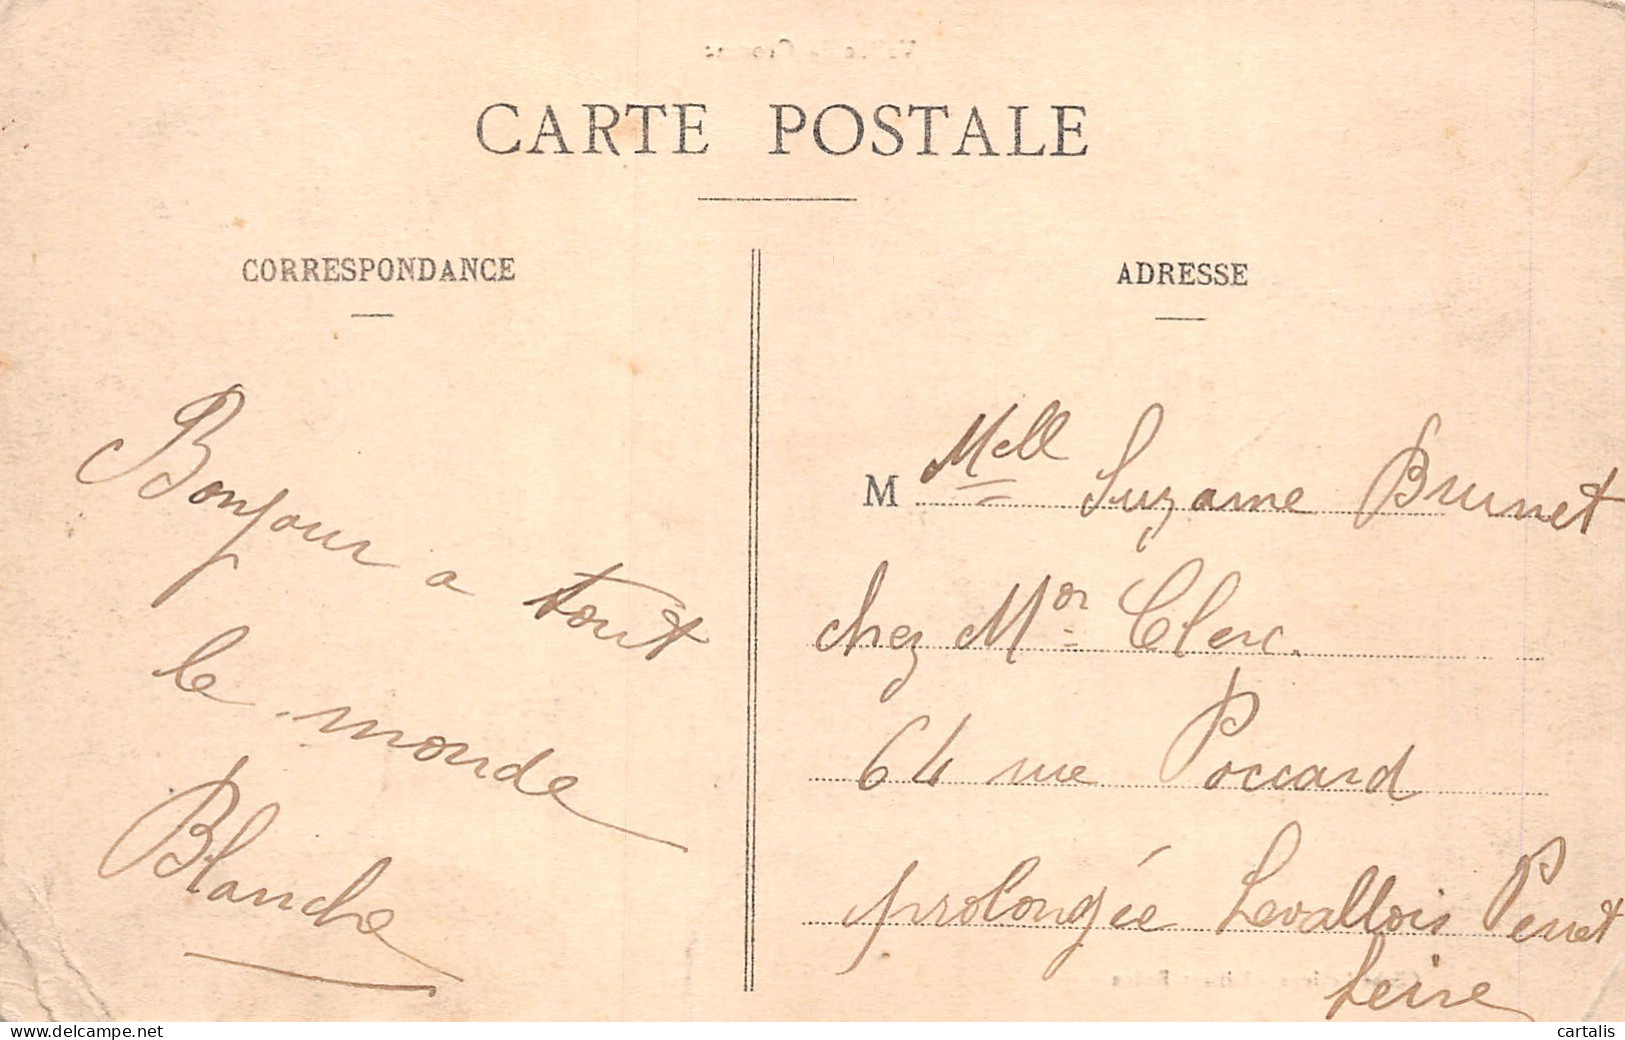 CARTE POSTALE
CORRESPONDANCE
Bonjour a tout
le monde
Blanche
ADRESSE
M Mell Suzanne Brunet
chez Mor Clerc.
64 rue Poccard
prolongée Levallois Perret
Seine
www.delcampe.net
cartalis